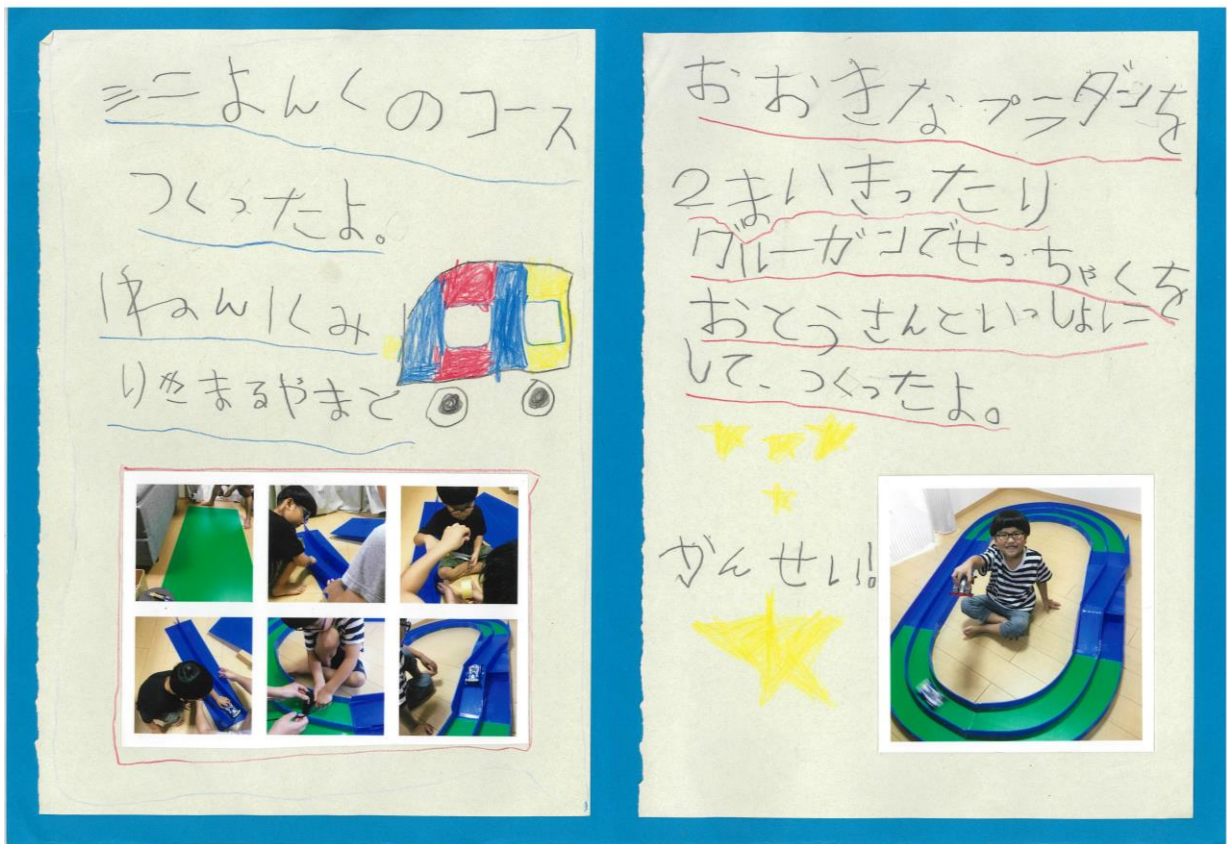 ミニよんくのコース
つくったよ。
りきまるやまと
おおきなプラダンを
2まいきったり
グルーガンでせっちゃくを
おとうさんといっしょに
して、つくったよ。
かんせい!